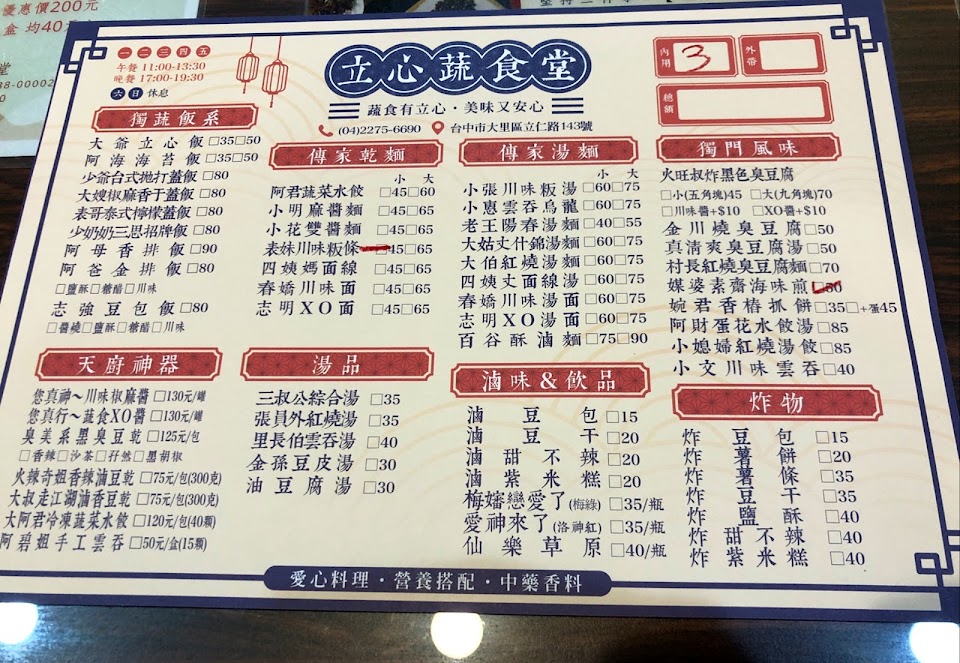 優惠價200元
盒 均40元
堂
88-00002
一二三四五
午餐 11:00-13:30
晚餐 17:00-19:30
六日 休息
立心蔬食堂
蔬食有立心・美味又安心
(04)2275-6690 台中市大里區立仁路143號
內用 3
外帶
總額
獨蔬飯系
大爺立心飯 □35□50
阿海海苔飯 □35□50
少爺台式拋打蓋飯 □80
大嫂椒麻香干蓋飯 □80
表哥泰式檸檬蓋飯 □80
少奶奶三思招牌飯 □80
阿母香排飯 □90
阿爸金排飯 □80
□鹽酥□糖醋□川味
志強豆包飯 □80
□醬燒□鹽酥□糖醋□川味
傳家乾麵
小 大
阿君蔬菜水餃 □45□60
小明麻醬麵 □45□65
小花雙醬麵 □45□65
表妹川味粄條 □45□65
四姨媽面線 □45□65
春嬌川味面 □45□65
志明XO面 □45□65
傳家湯麵
小 大
小張川味粄湯 □60□75
小惠雲吞烏龍 □60□75
老王陽春湯麵 □40□55
大姑丈什錦湯麵 □60□75
大伯紅燒湯麵 □60□75
四姨丈面線湯 □60□75
春嬌川味湯面 □60□75
志明XO湯面 □60□75
百谷酥滷麵 □75□90
獨門風味
火旺叔炸黑色臭豆腐
□小(五角塊)45 □大(九角塊)70
□川味醬+$10 □XO醬+$10
金川燒臭豆腐 □50
真清爽臭豆腐湯 □50
村長紅燒臭豆腐麵 □70
媒婆素齋海味煎 □50
婉君香椿抓餅 □35□+蛋45
阿財蛋花水餃湯 □85
小媳婦紅燒湯餃 □85
小文川味雲吞 □40
天廚神器
您真神~川味椒麻醬 □130元/罐
您真行~蔬食XO醬 □130元/罐
臭美系黑臭豆乾 □125元/包
□香辣□沙茶□孜然□黑胡椒
火辣奇姐香辣滷豆乾 □75元/包(300克)
大叔走江湖滷香豆乾 □75元/包(300克)
大阿君冷凍蔬菜水餃 □120元/包(40顆)
阿碧姐手工雲吞 □50元/盒(15顆)
湯品
三叔公綜合湯 □35
張員外紅燒湯 □35
里長伯雲吞湯 □40
金孫豆皮湯 □30
油豆腐湯 □30
滷味&飲品
滷豆包 □15
滷豆干 □20
滷甜不辣 □20
滷紫米糕 □20
梅嬸戀愛了(梅綠) □35/瓶
愛神來了(洛神紅) □35/瓶
仙樂草原 □40/瓶
炸物
炸豆包 □15
炸薯餅 □20
炸薯條 □35
炸豆干 □35
炸鹽酥 □40
炸甜不辣 □40
炸紫米糕 □40
愛心料理・營養搭配・中藥香料